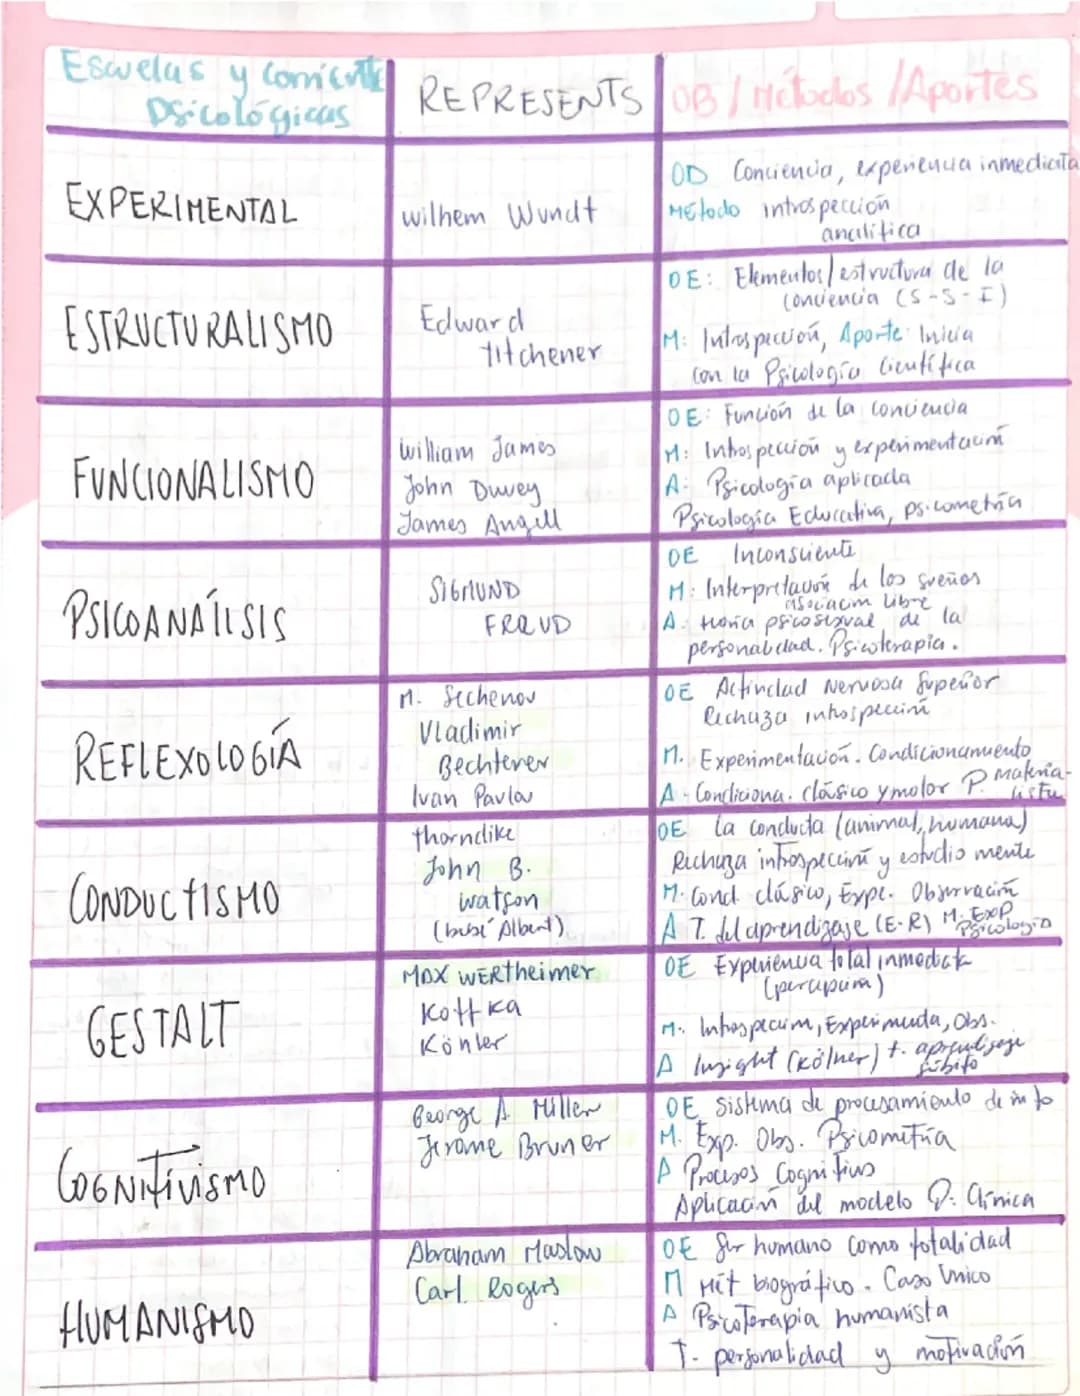 Escuelas y corriente
Psicológicas
REPRESENTS
OB / Métodos / Aportes
EXPERIMENTAL
wilhem Wundt
OD Conciencia, experiencia inmediata
Método introspección
analítica
ESTRUCTURALISMO
Edward
titchener
OE: Elementos/estructura de la
conciencia (S-S-I)
M: Introspección, Aporte: Inicia
con la Psicología Científica
FUNCIONALISMO
William James
John Duvey
James Angell
OE: Función de la conciencia
M: Introspección y experimentación
A: Psicología aplicada
Psicología Educativa, psicometría
PSICOANÁlISIS
SIGMUND
FREUD
OE Inconsciente
M: Interpretación de los sueños
asociación libre
A: teoría psicosexual de la
personalidad. Psicoterapia.
REFLEXOLOGÍA
M. Sechenov
Vladimir
Bechterev
Ivan Pavlov
OE Actividad Nerviosa Superior
Rechaza introspección
M. Experimentación. Condicionamiento
A - Condiciona. clásico y motor P. Materia-
lista
CONDUCtISMO
thorndike
John B.
watson
(bebé Albert)
OE La conducta (animal, humana)
Rechaza introspección y estudio mente
M. Cond clásico, Expe. Observación
A T. del aprendizaje (E-R) M. Exp
Psicología
GESTALT
MAX WERtheimer
Koffka
Könler
OE Experiencia total inmediata
(percepción)
M. Introspección, Experimenta, Obs.
A Insight (Kölner) t. aprendizaje
súbito
COGNItivISMO
George A. Miller
Jerome Bruner
OE Sistema de procesamiento de info
M. Exp. Obs. Psicometría
A Procesos Cognitivos
Aplicación del modelo P. Clínica
HUMANISMO
Abraham Maslow
Carl. Rogers
OE Ser humano como totalidad
M Mét biográfico. Caso Único
A Psicoterapia humanista
T- personalidad y motivación